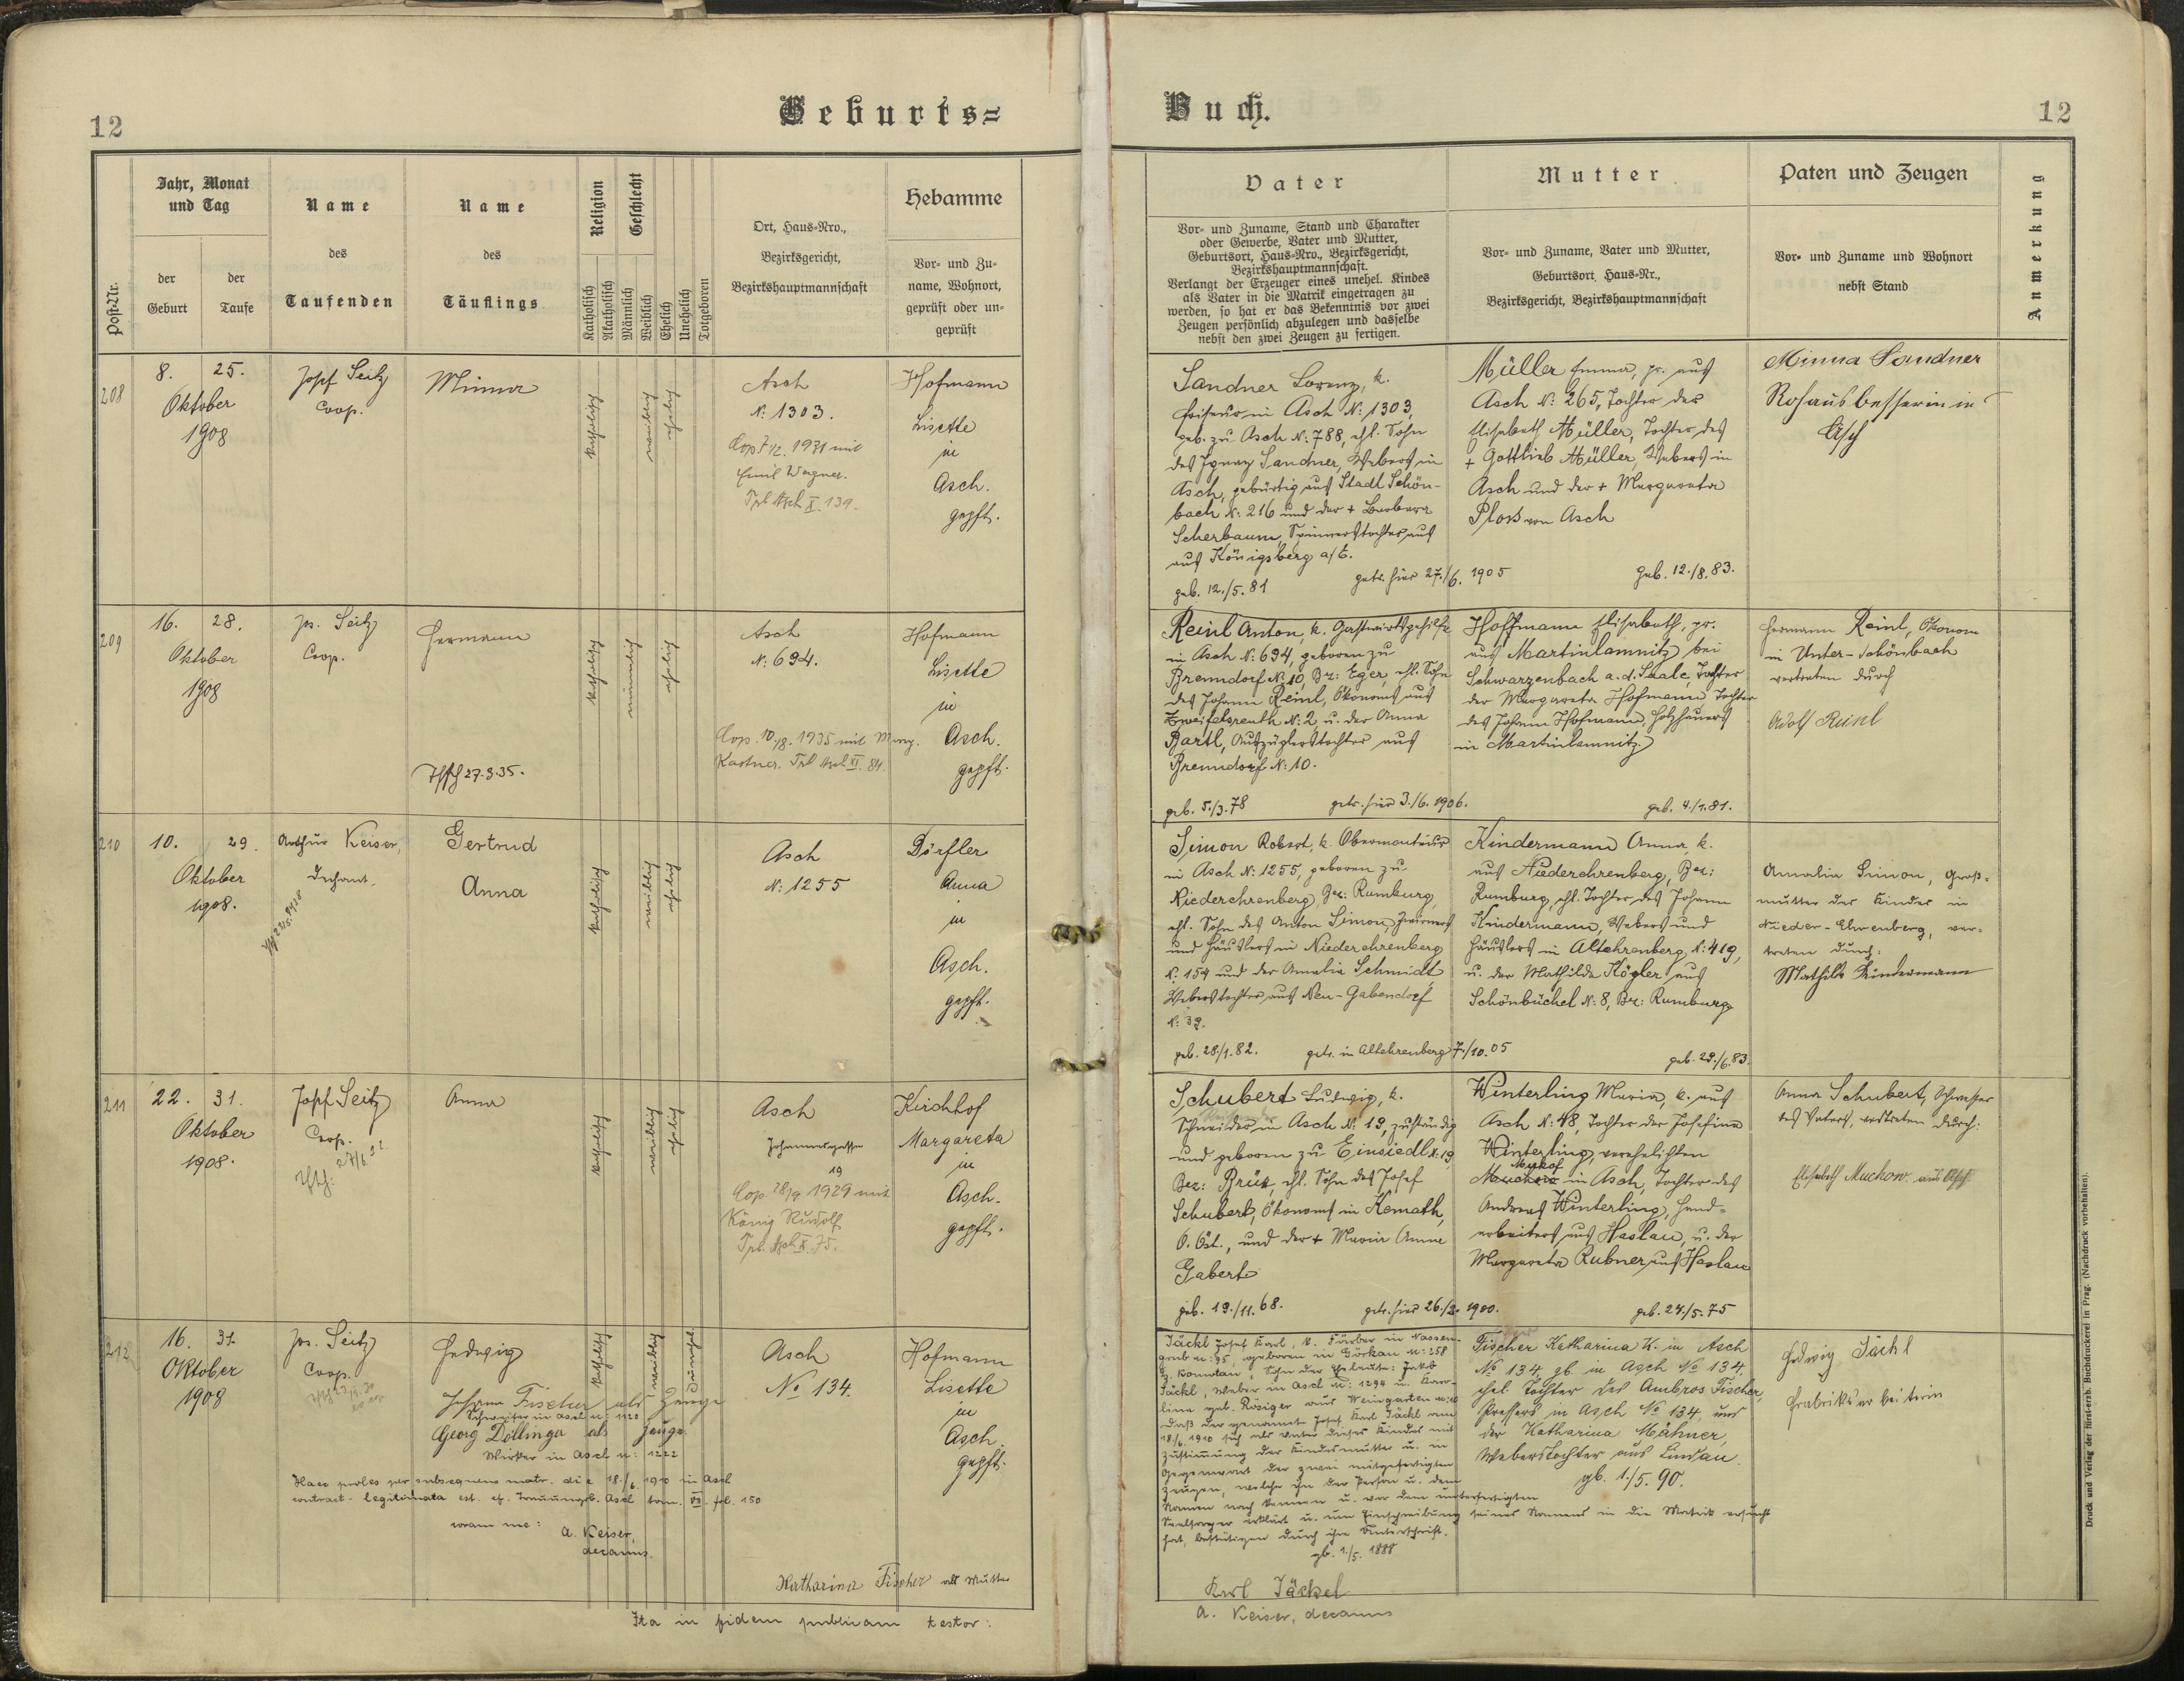 12
Geburts=
Jahr, Monat
und Tag
Name
Name
Religion
Geschlecht
Hebamme
Ort, Haus-Nro.,
Bezirksgericht,
Bezirkshauptmannschaft
Post-Nr.
der
Geburt
der
Taufe
des
Taufenden
des
Täuflings
Katholisch
Akatholisch
Männlich
Weiblich
Ehelich
Unehelich
Totgeboren
Vor- und Zu-
name, Wohnort,
geprüft oder un-
geprüft
208
8. 25.
Oktober
1908
Josef Seitz
Coop.
Minna
katholisch
weiblich
ehelich
Asch
N: 1303.
Cop. 7/12. 1931 mit
Emil Wagner.
Trb Asch X. 139.
Hofmann
Lisette
in
Asch.
gepft.
209
16. 28.
Oktober
1908
Jos. Seitz
Coop.
Hermann
27.3.35.
katholisch
männlich
ehelich
Asch
N: 694.
Cop. 10/8. 1935 mit Marg.
Kastner. Trb Asch XI. 84
Hofmann
Lisette
in
Asch.
gepft.
210
10. 29.
Oktober
1908.
Arthur Keiser,
Dechant.
Gertrud
Anna
katholisch
weiblich
ehelich
Asch
N: 1255
Dörfler
Anna
in
Asch.
gepft.
211
22. 31.
Oktober
1908.
Josef Seitz
Coop.
Anna
katholisch
weiblich
ehelich
Asch
Johannesgasse
19
Cop. 28/9 1929 mit
König Rudolf
Trb. Asch X. 75.
Kirchhof
Margareta
in
Asch.
gepft.
212
16. 31.
Oktober
1908
Jos. Seitz
Coop.
Hedwig
katholisch
weiblich
Johann Fischer als Zeuge
in Asch n: 1128
Georg Döllinger als Zeuge.
Wirker in Asch n: 1222
Haec proles per subsequens matr. die 18./6. 1910 in Asch
contract. legitimata est. cf. Trauungsb. Asch tom. VII. fol. 150
coram me:
A. Keiser,
decanus.
Asch
No 134.
Hofmann
Lisette
in
Asch
gepft.
Katharina Fischer als Mutter
Ita in fidem publicam testor:
Buch.
12
Vater
Mutter
Paten und Zeugen
Anmerkung
Vor- und Zuname, Stand und Charakter
oder Gewerbe, Vater und Mutter,
Geburtsort, Haus-Nro., Bezirksgericht,
Bezirkshauptmannschaft.
Verlangt der Erzeuger eines unehel. Kindes
als Vater in die Matrik eingetragen zu
werden, so hat er das Bekenntnis vor zwei
Zeugen persönlich abzulegen und dasselbe
nebst den zwei Zeugen zu fertigen.
Vor- und Zuname, Vater und Mutter,
Geburtsort, Haus-Nr.,
Bezirksgericht, Bezirkshauptmannschaft
Vor- und Zuname und Wohnort
nebst Stand
Sandner Lorenz, k.
Friseur in Asch N: 1303,
geb. zu Asch N: 788, ehl. Sohn
des Ignaz Sandner, Webers in
Asch, gebürtig aus Stadt Schön-
bach N: 216 und der + Barbara
Scherbaum, Spinnerstochter aus
aus Königsberg a/E.
geb. 12./5. 81
getr. hier 27./6. 1905
Müller Emma, pr. aus
Asch N: 265, Tochter der
Elisabeth Müller, Tochter des
+ Gottlieb Müller, Webers in
Asch und der + Margareta
Ploss von Asch
geb. 12./8. 83.
Minna Sandner
Rohausbesserin in
Asch
Reinl Anton, k. Gastwirtsgehilfe
in Asch N: 694, geboren zu
Brenndorf N: 10, Bz: Eger, ehl. Sohn
des Johann Reinl, Ökonoms aus
Zweifelsreuth N: 2 u. der Anna
Bartl, Auszüglerstochter aus
Brenndorf N: 10.
geb. 5./3. 78
getr. hier 3./6. 1906.
Hoffmann Elisabeth, pr.
aus Martinlamnitz bei
Schwarzenbach a. d. Saale, Tochter
der Margareta Hofmann, Tochter
des Johann Hofmann, Holzhauers
in Martinlamnitz.
geb. 4./1. 81.
Hermann Reinl, Ökonom
in Unter-Schönbach
vertreten durch
Adolf Reinl
Simon Robert, k. Obermonteur
in Asch N: 1255, geboren zu
Niederehrenberg, Bez: Rumburg,
ehl. Sohn des Anton Simon, Zwirners
und Häuslers in Niederehrenberg
N: 154 und der Amalia Schmidt
Weberstochter aus Neu-Gabendorf
N: 39.
geb. 28./1. 82.
getr. in Altehrenberg 7./10. 05
Kindermann Anna, k.
aus Niederehrenberg, Bez:
Rumburg, ehl. Tochter des Johann
Kindermann, Webers und
Häuslers in Altehrenberg N: 419,
u. der Mathilde Kögler aus
Schönbüchel N: 8, Bz: Rumburg
geb. 29./6. 83.
Amalia Simon, Groß-
mutter des Kindes in
Nieder-Ehrenberg, ver-
treten durch:
Mathilde Kindermann
Schubert Ludwig, k.
Schneider in Asch N: 19, zuständig
und geboren zu Einsiedl N: 19,
Bez: Brüx, ehl. Sohn des Josef
Schubert, Ökonoms in Kemath,
O. Öst., und der + Maria Anna
Gabert
geb. 19./11. 68.
getr. hier 26./2. 1900.
Winterling Maria, k. aus
Asch N: 48, Tochter der Josefine
Winterling, verehelichten
in Asch, Tochter des
Andreas Winterling, Hand-
arbeiters aus Haslau, u. der
Margareta Rubner aus Haslau
geb. 24./5. 75
Anna Schubert, Schwester
des Vaters, vertreten durch:
Elisabeth Muchow aus Asch
Jäckl Josef Karl, k. Färber in Nassen-
grub n: 95, geboren in Görkau n: 258
Bz. Komotau, Sohn der Eheleute: Jakob
Jäckl, Weber in Asch n: 1294 u. Karo-
line geb. Rösiger aus Weingarten n: 10
daß der genannte Josef Karl Jäckl am
18./6. 1910 sich als Vater dieses Kindes mit
Zustimmung der Kindesmutter u. in
Gegenwart der zwei mitgefertigten
Zeugen, welche ihn der Person u. dem
Namen nach kennen u. vor dem unterfertigten
Seelsorger erklärt u. um Einschreibung seines Namens in die Matrik ersucht
hat, bestätigen durch ihre Unterschrift.
gb. 1./5. 1888
Karl Jäckel
A. Keiser, decanus
Fischer Katharina K. in Asch
No 134, gb. in Asch No 134,
ehel. Tochter des Ambros Fischer,
Pressers in Asch No 134, und
der Katharina Mähner,
Weberstochter aus Lindau.
gb. 1./5. 90.
Hedwig Jäckl
Fabriksarbeiterin
Druck und Verlag der fürst-erzb. Buchdruckerei in Prag. (Nachdruck vorbehalten).